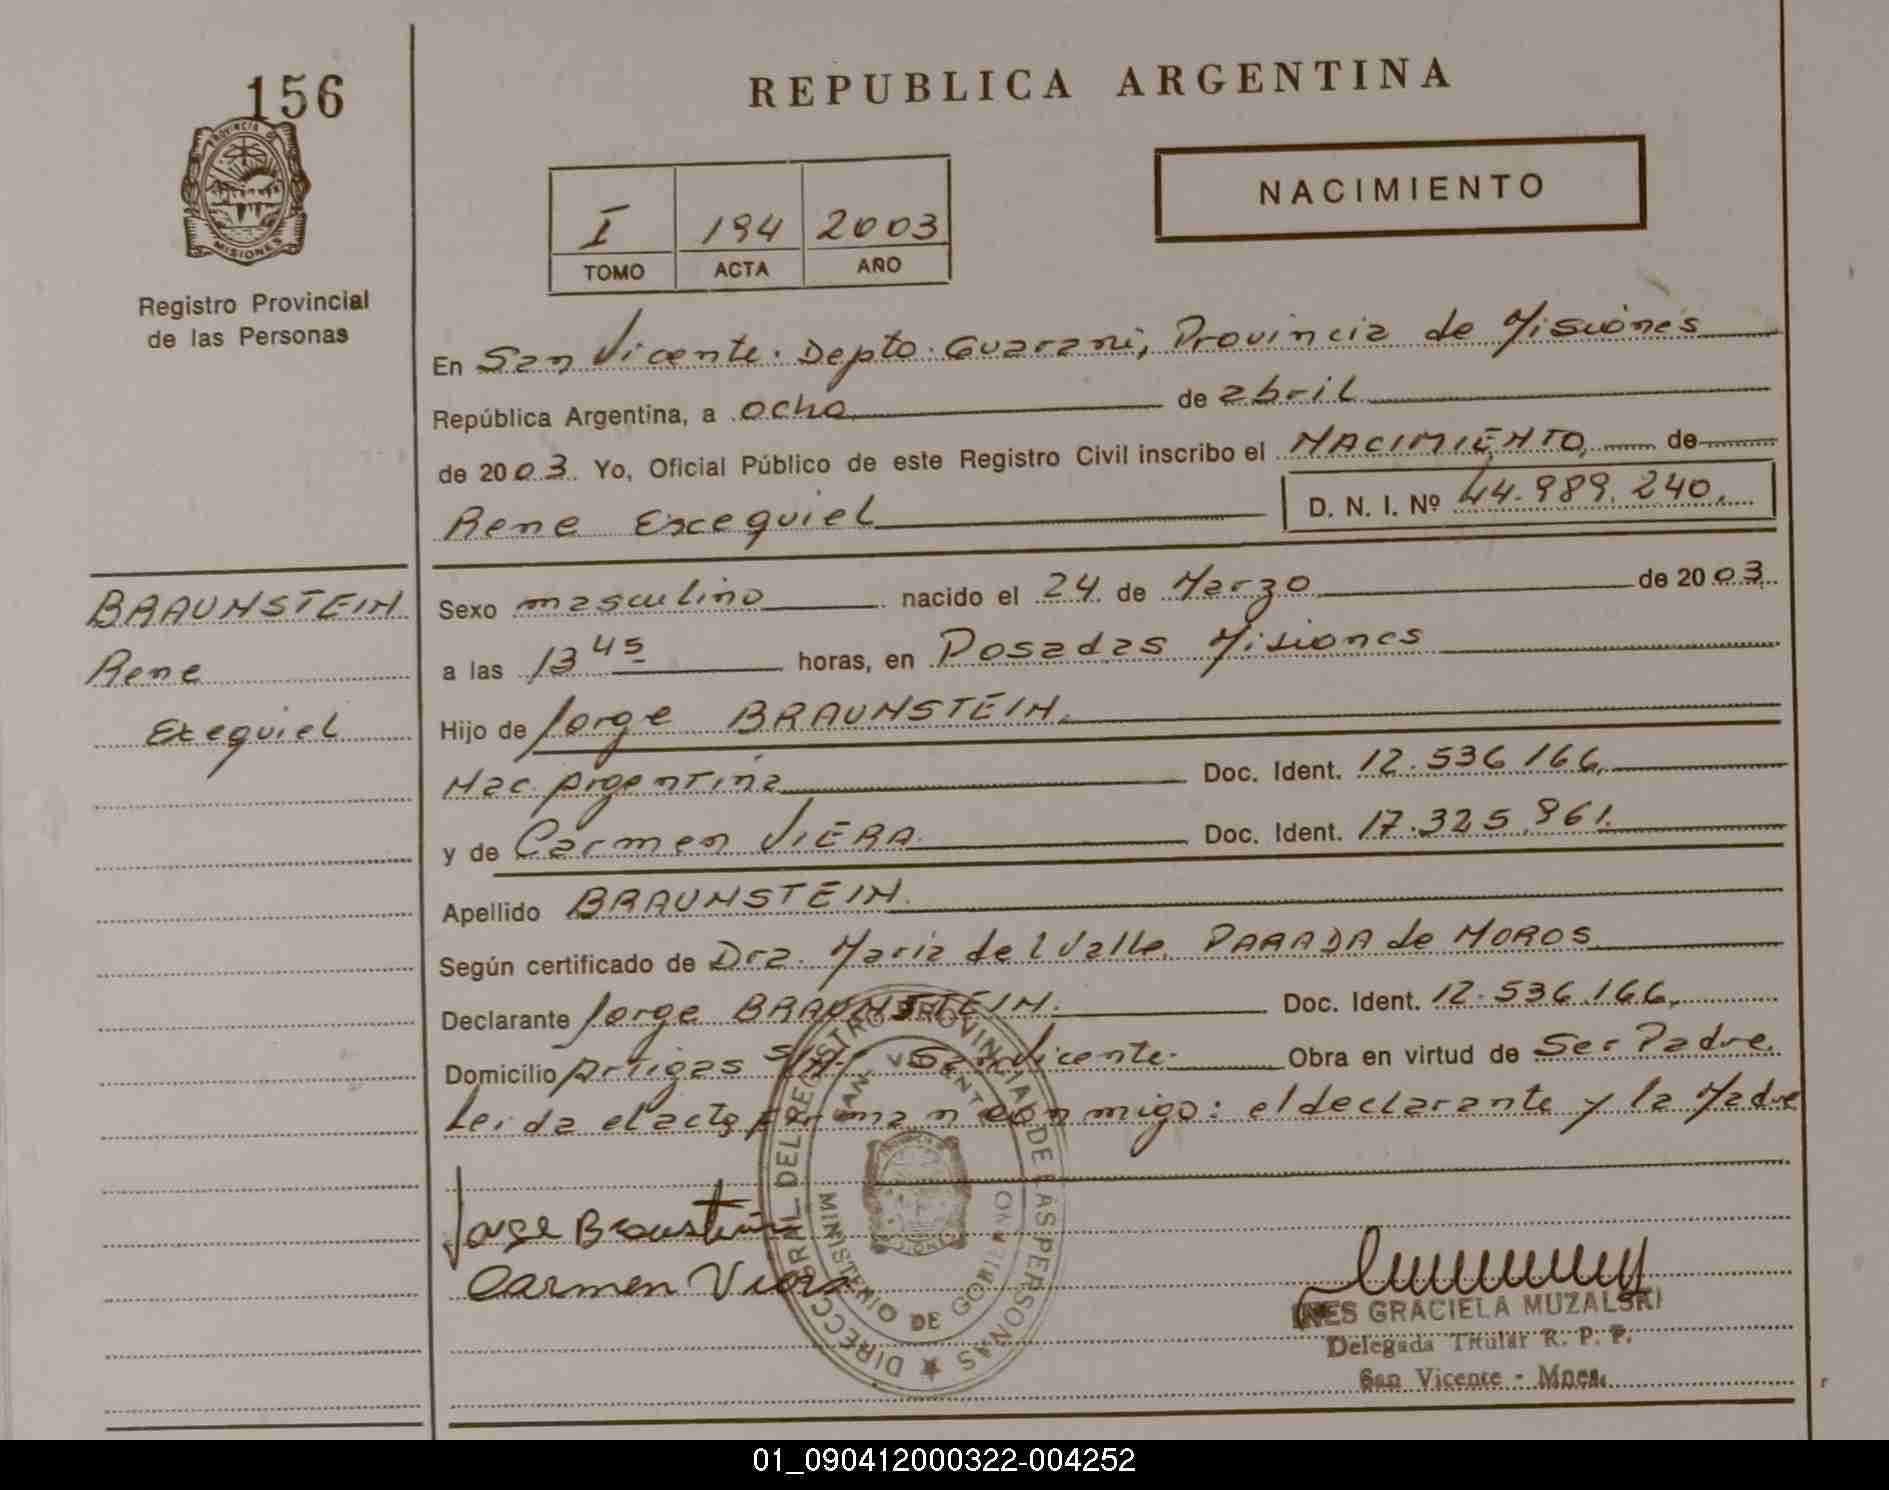 156
PROVINCIA DE
MISIONES
Registro Provincial
de las Personas
REPUBLICA ARGENTINA
NACIMIENTO
I 194 2003
TOMO ACTA AÑO
En San Vicente. Depto. Guarani, Provincia de Misiones
República Argentina, a ocho de abril
de 2003. Yo, Oficial Público de este Registro Civil inscribo el NACIMIENTO de
Rene Exequiel D. N. I. Nº 44.989.240.
BRAUNSTEIN
Rene
Exequiel
Sexo masculino nacido el 24 de Marzo de 2003.
a las 13 45 horas, en Posadas Misiones
Hijo de Jorge BRAUNSTEIN.
Nac. Argentina Doc. Ident. 12.536.166.
y de Carmen VIERA Doc. Ident. 17.325.861.
Apellido BRAUNSTEIN.
Según certificado de Dra. Maria del Valle PARADA de MOROS
Declarante Jorge BRAUNSTEIN. Doc. Ident. 12.536.166.
Domicilio Artigas S/N. San Vicente. Obra en virtud de Ser Padre.
Leida el acta firman conmigo: el declarante y la Madre
Jorge Braustein
Carmen Viera
DIRECC GRAL DEL REGISTRO PROVINCIAL DE LAS PERSONAS
SAN VICENTE
MINISTERIO DE GOBIERNO
INES GRACIELA MUZALSKI
Delegada Titular R. P. P.
San Vicente - Mnes.
01_090412000322-004252